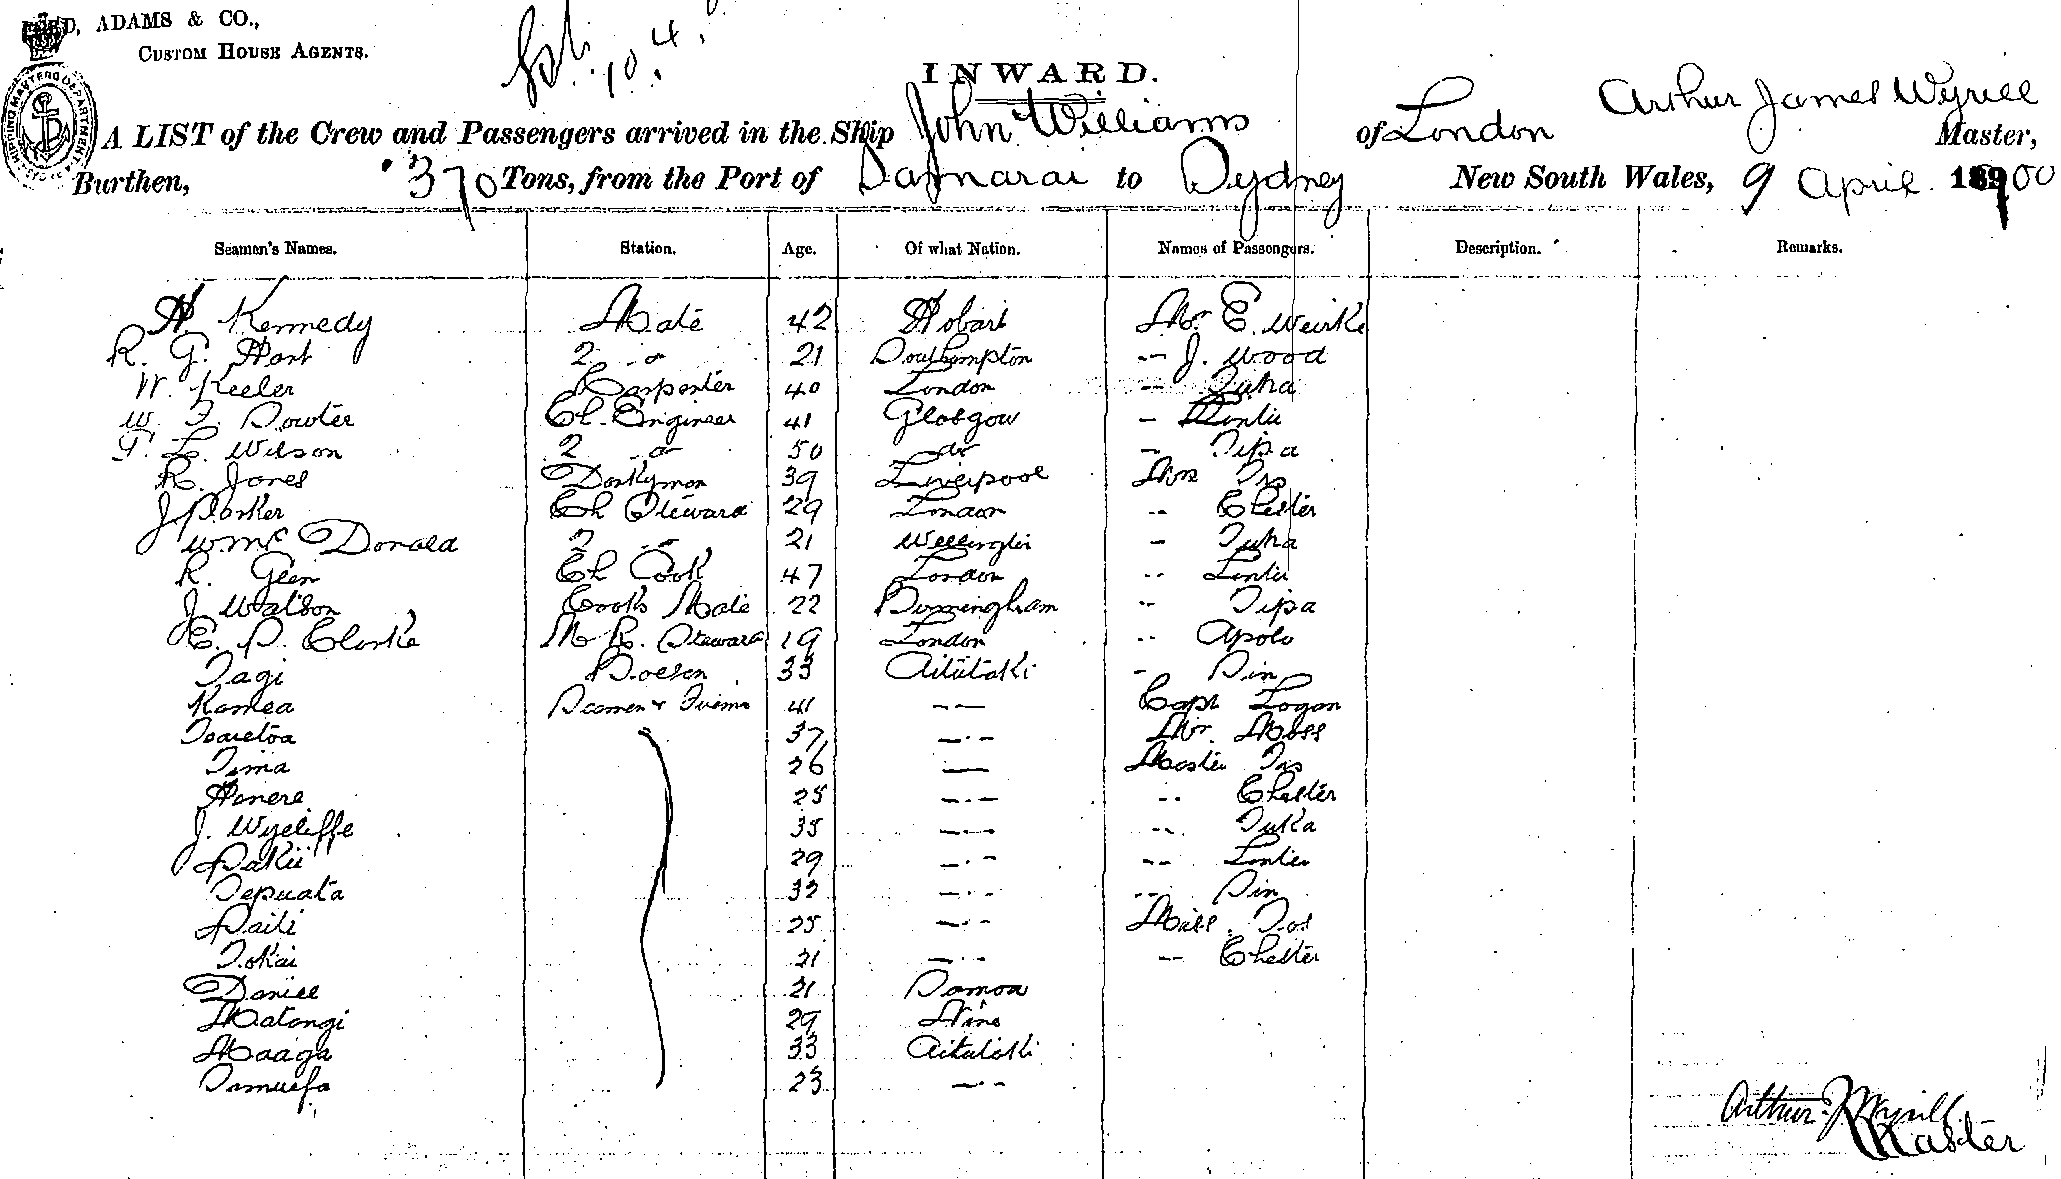 D, ADAMS & CO.,
CUSTOM HOUSE AGENTS.
10.4.
INWARD.
Arthur James Wyrill
A LIST of the Crew and Passengers arrived in the Ship John Williams of London Master,
Burthen, 370 Tons, from the Port of Samarai to Sydney New South Wales, 9 April 1900
Seamen's Names. Station. Age. Of what Nation. Names of Passengers. Description. Remarks.
H Kennedy Mate 42 Hobart Mr E. Weirke
R. G. Hart 2 do 21 Southampton -- J. Wood
W. Keeler Carpenter 40 London -- Tuka
W. F. Dowter Ch. Engineer 41 Glasgow -
T. L. Wilson 2 do 50 do - Tipa
R. Jones Donkyman 39 Liverpool Mrs
J Parker Ch Steward 29 London -- Chester
W Mc Donald 2 do 21 Wellington - Tuka
R. Glen Ch Cook 47 London --
J Watson Cooks Mate 22 Birmingham -- Tipa
E. P. Clarke M. R. Steward 19 London -- Apolo
Tagi Boesen 33 Aitutaki - Pin
Kamea Seamen & Firemn 41 -- Capt Logan
Taretoa 37 -.- Mr. Moss
Tima 26 — Master
Henere 25 -.- -- Chester
J. Wycliffe 35 -.- -- Tuka
Pakii 29 -.- --
Tepuata 33 -.- -- Pin
Paili 25 -.- Miss
Tokai 21 -.- -- Chester
Daniel 21 Samoa
Matangi 29 Niue
Maaga 33 Aitutaki
Samuefa 23 -.-
Arthur J Wyrill
Master